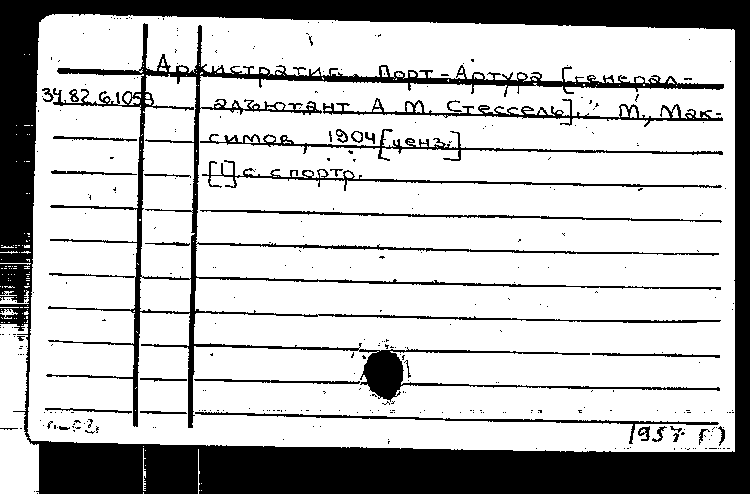 Архистратиг Порт-Артура [генерал-
34.82.6.1059 адъютант А. М. Стессель]. М., Мак-
симов, 1904 [ценз.]
[1] с. с портр.
1957